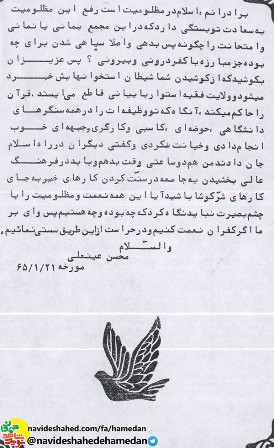 برادرانم، اسلام در مظلومیت است رفع این مظلومیت
به سعادت تو بستگی دارد که در این مجمع بمانی یا نمانی
وامتحانت را چگونه پس بدهی واصلا سپاهی شدن برای چه
بوده جز مبارزه با کفر درونی وبیرونی ؟ پس عزیزان
بکوشید که از کوشیدن شما شیطان استخوانهایش خرد
میشود و ولایت فقیه استوار و با بیانی قاطع می ایستد، قرآن
را حاکم میکند، آنگاه که تو وظیفه ات را در همه سنگرهای
دانشگاهی ، حوزه ای ، کاسبی وکارگری وجبهه ای خوب
انجام دادی وخیانت نکردی وگفتی دیگران در راه اسلام
جان دادند من هم دو ساعتی وقت بدهم ویا بد در فرهنگ
عالی بخشیدن به جامعه در سنت کردن کارهای خیر به جای
کارهای شر کوشا باشید آیا این همه نعمت و مظلومیت را با
چشم بصیرت نباید نگاه کرد که چه بوده وچه هستیم پس وای بر
ما اگر کفران نعمت کنیم ودر حراست از این طریق سستی نمائیم،
والسلام
محسن عینعلی
مورخه ۶۵/۱/۲۱
navideshahed.com/fa/hamedan
@navideshahedehamedan